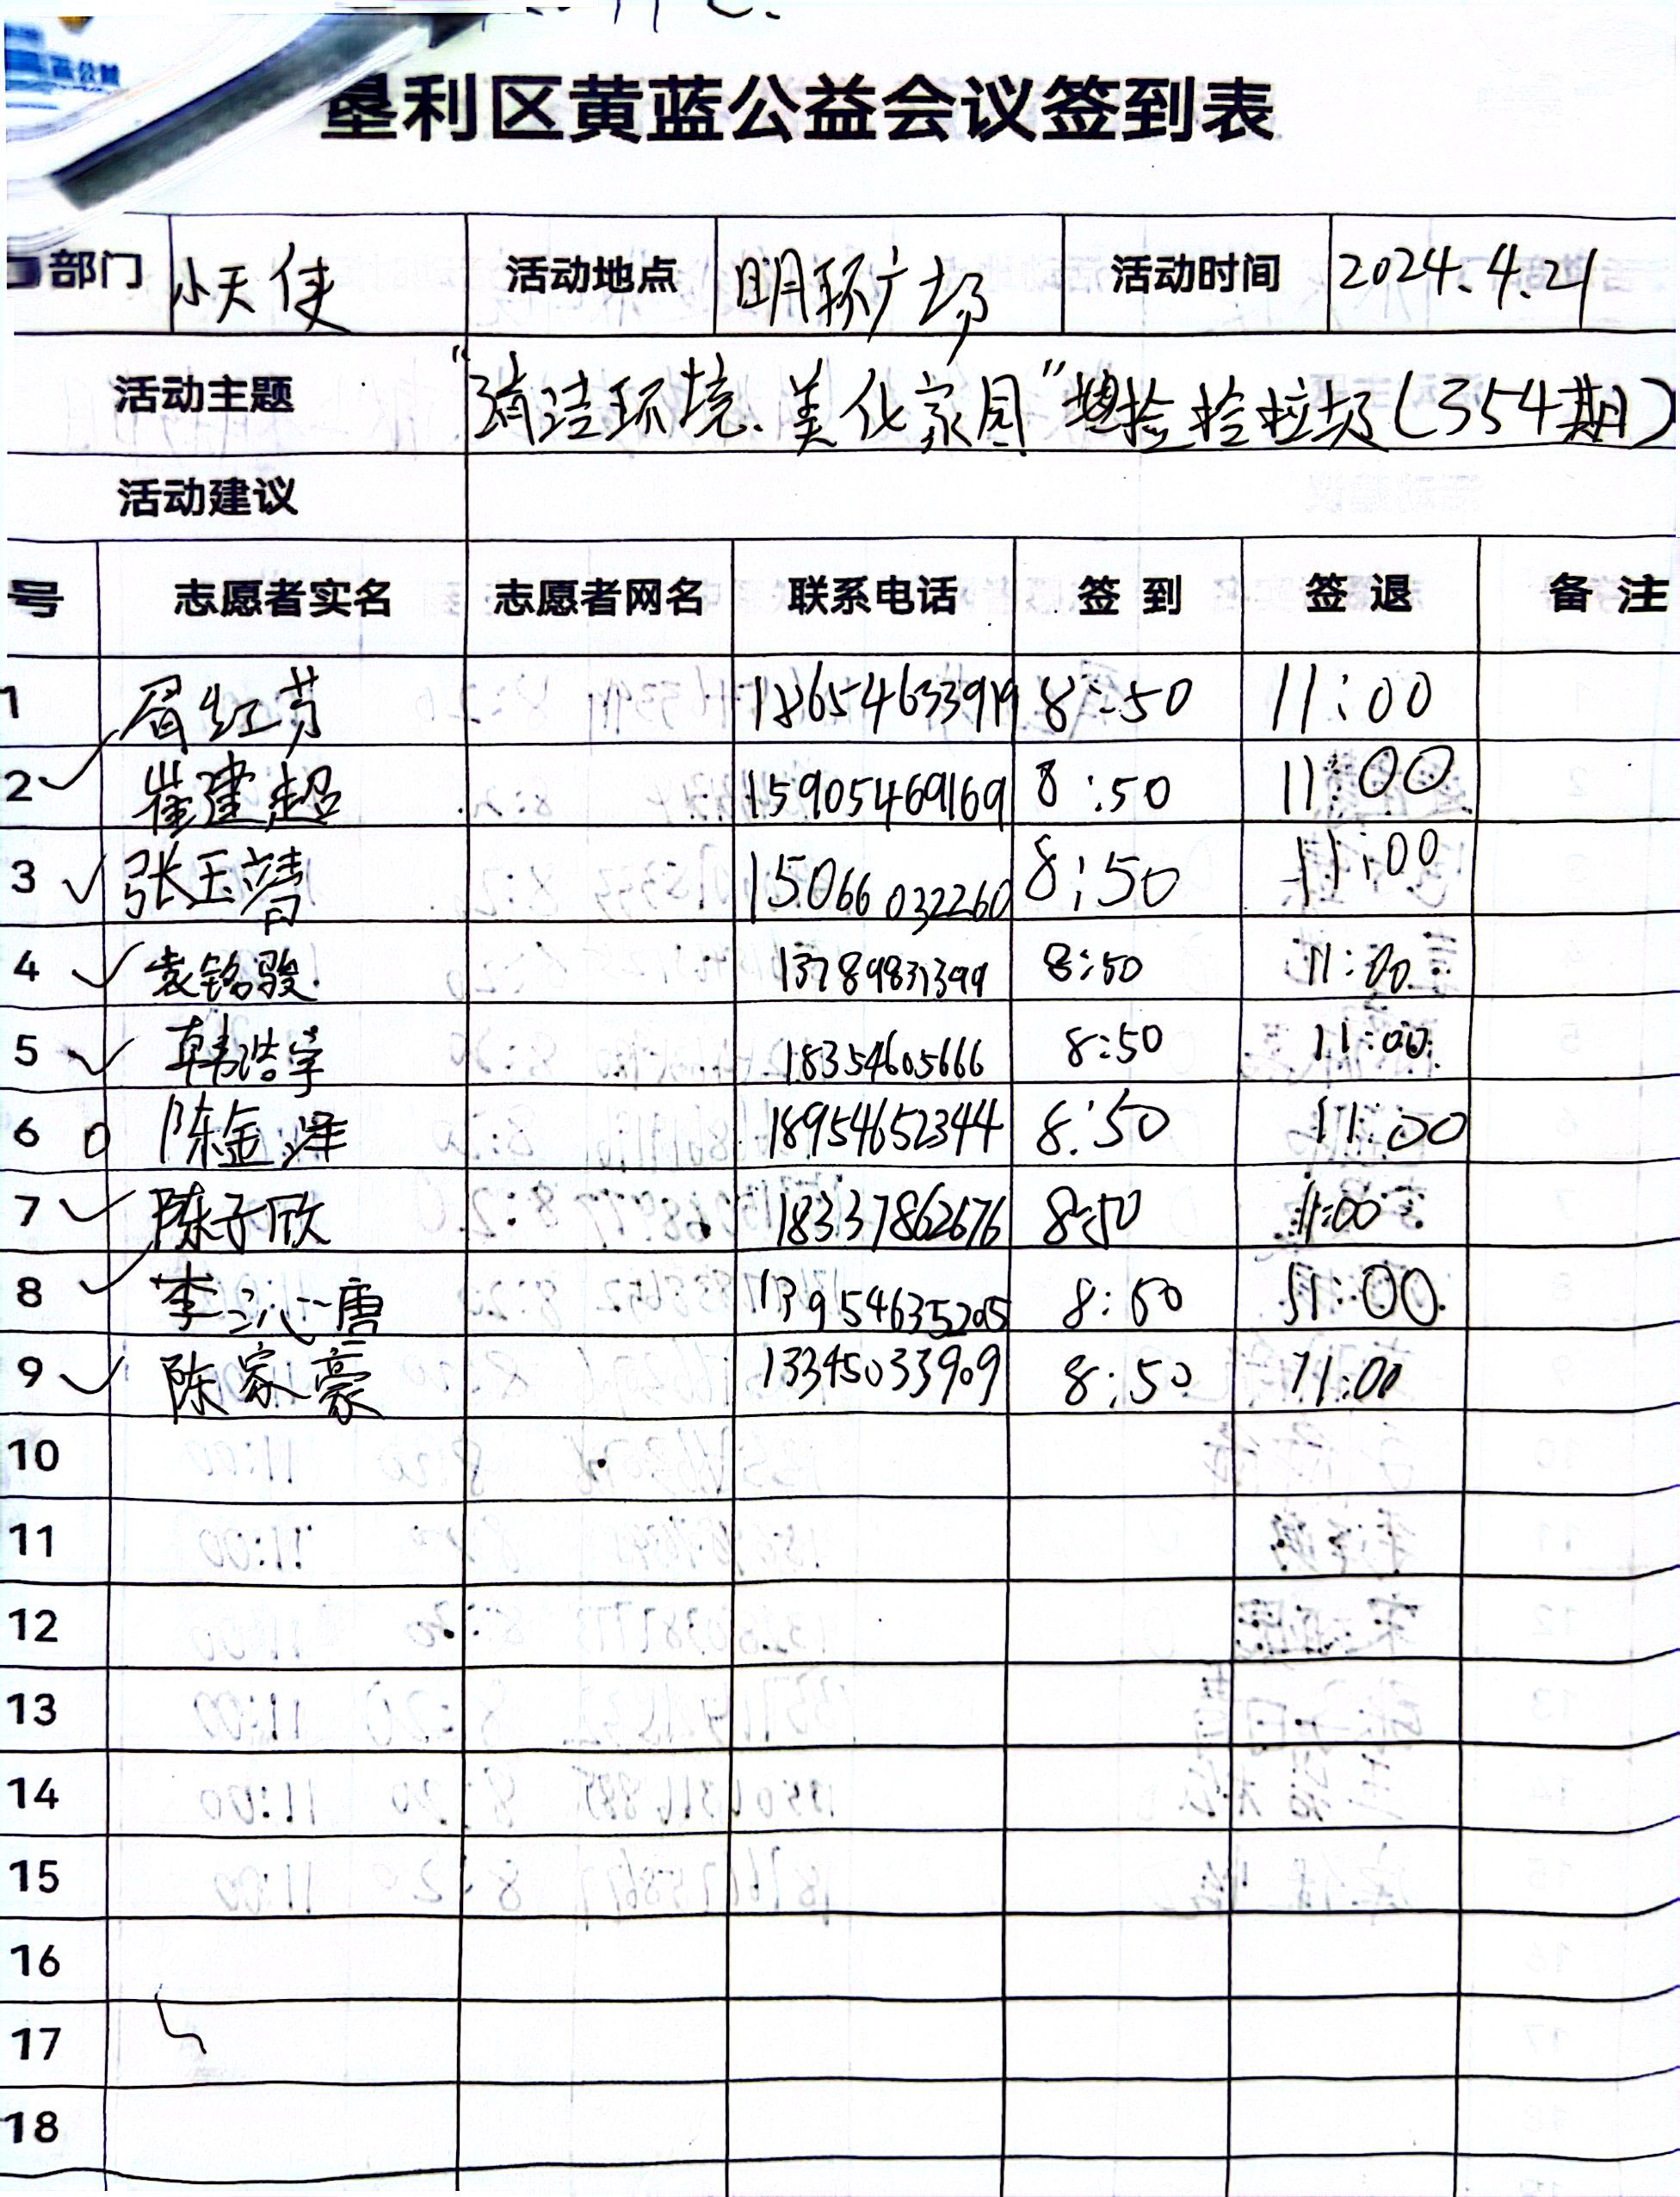 垦利区黄蓝公益会议签到表
部门 小天使 活动地点 明珠广场 活动时间 2024.4.21
活动主题 "清洁环境、美化家园" 捡拾垃圾(354期)
活动建议
号 志愿者实名 志愿者网名 联系电话 签到 签退 备注
1 红芳 18654633919 8:50 11:00
2 崔建超 15905469169 8:50 11:00
3 张玉婧 15066032260 8:50 11:00
4 袁铭骏 13789831399 8:50 11:00
5 韩浩宇 18354605666 8:50 11:00
6 陈金泽 18954652344 8:50 11:00
7 陈子欣 18337862676 8:50 11:00
8 李沁唐 13954635205 8:50 11:00
9 陈家豪 13345033909 8:50 11:00
10
11
12
13
14
15
16
17
18